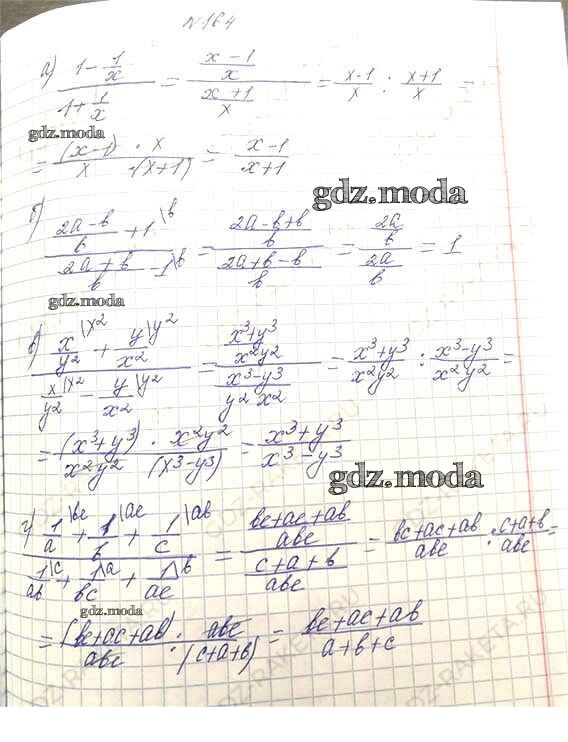 N 164
а) (1 - 1/x)/(1 + 1/x) = ((x-1)/x)/((x+1)/x) = (x-1)/x : (x+1)/x =
gdz.moda
= (x-1)/x · x/(x+1) = (x-1)/(x+1)
gdz.moda
б) ((2a-b)/b + 1\b)/((2a+b)/b - 1\b) = ((2a-b+b)/b)/((2a+b-b)/b) = (2a/b)/(2a/b) = 1
gdz.moda
в) (x/y2 \x2 + y/x2 \y2)/(x/y2 \x2 - y/x2 \y2) = ((x3+y3)/(x2y2))/((x3-y3)/(y2 x2)) = (x3+y3)/(x2y2) : (x3-y3)/(x2y2) =
= (x3+y3)/(x2y2) · x2y2/(x3-y3) = (x3+y3)/(x3-y3)
gdz.moda
г) (1/a \bc + 1/b \ac + 1/c \ab)/(1/ab \c + 1/bc \a + 1/ac \b) = ((bc+ac+ab)/abc)/((c+a+b)/abc) = (bc+ac+ab)/abc : (c+a+b)/abc =
gdz.moda
= (bc+ac+ab)/abc · abc/(c+a+b) = (bc+ac+ab)/(a+b+c)